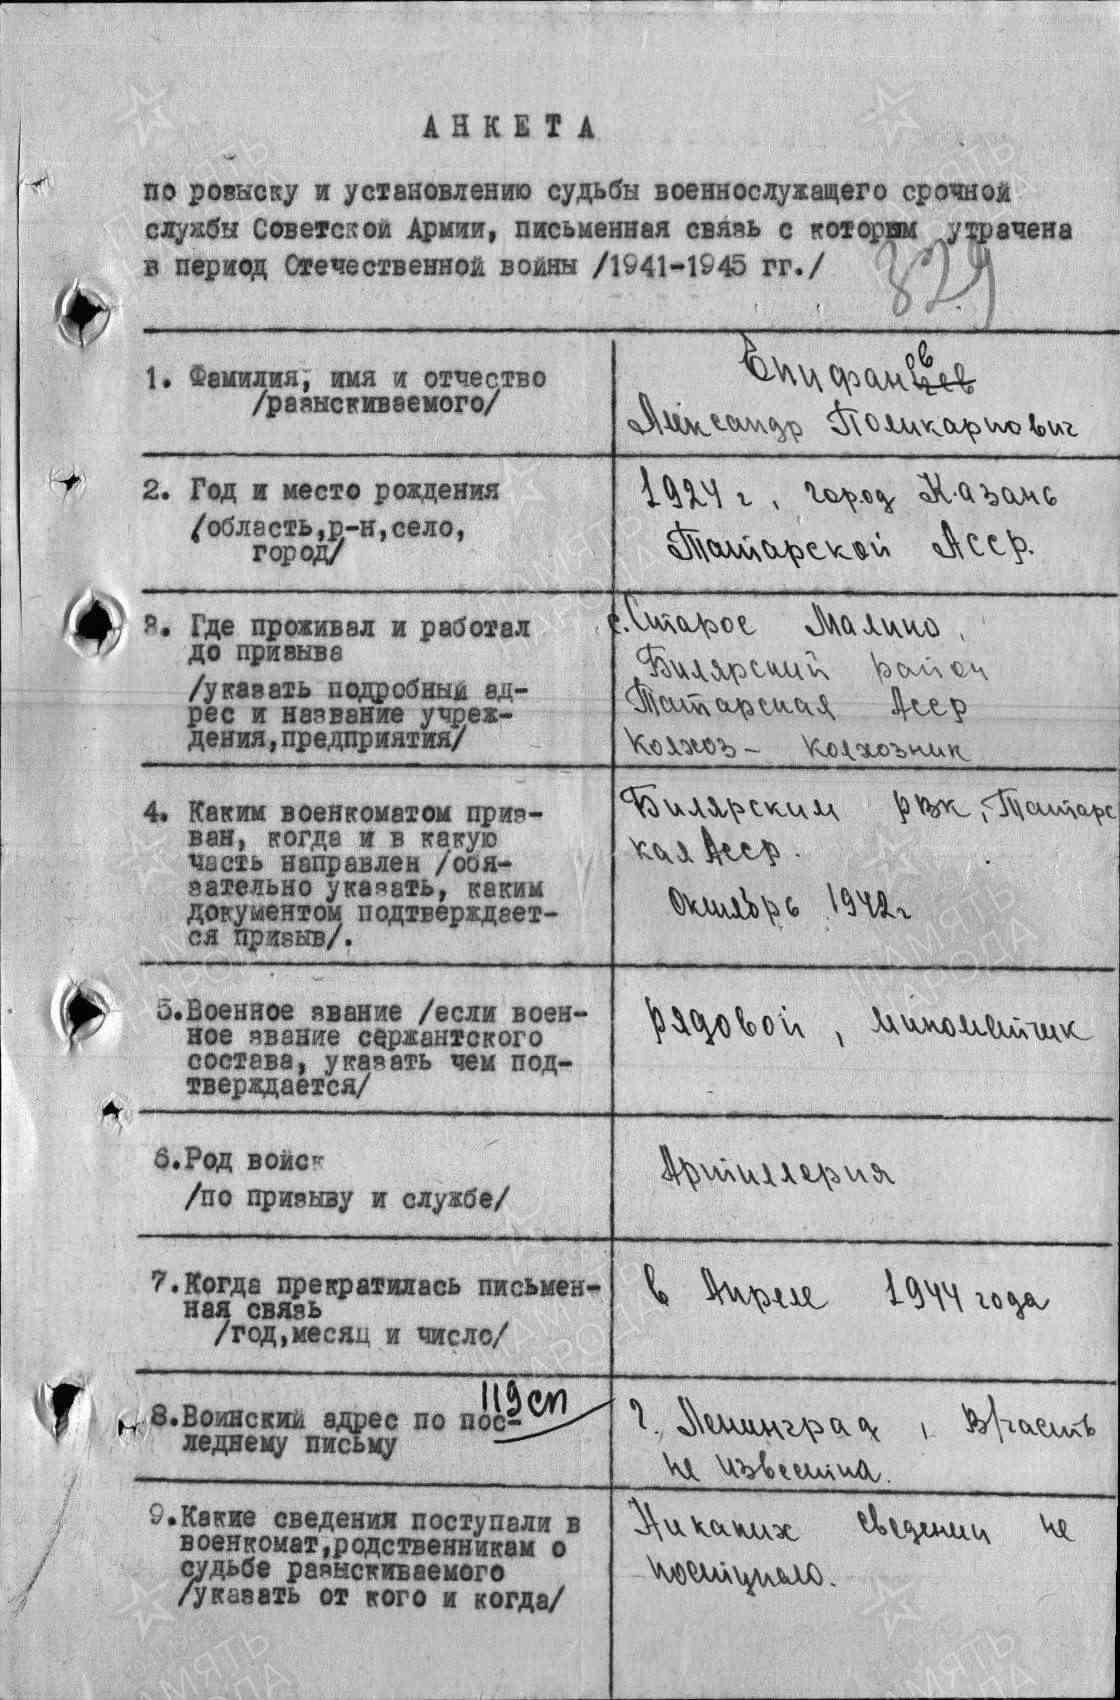 АНКЕТА
по розыску и установлению судьбы военнослужащего срочной
службы Советской Армии, письменная связь с которым утрачена
в период Отечественной войны /1941-1945 гг./
329
1. Фамилия, имя и отчество
/разыскиваемого/
Епифанов
Александр Поликарпович
2. Год и место рождения
/область,р-н,село,
город/
1924 г, город Казань
Татарской Асср.
3. Где проживал и работал
до призыва
/указать подробный ад-
рес и название учреж-
дения,предприятия/
с.Старое Малино,
Билярский район
Татарская Асср
Колхоз - колхозник
4. Каким военкоматом приз-
ван, когда и в какую
часть направлен /обя-
зательно указать, каким
документом подтверждает-
ся призыв/.
Билярским рвк, Татарс
кая Асср.
Октябрь 1942г
5.Военное звание /если воен-
ное звание сержантского
состава, указать чем под-
тверждается/
рядовой, минометчик
6.Род войск
/по призыву и службе/
Артиллерия
7.Когда прекратилась письмен-
ная связь
/год,месяц и число/
в Апреле 1944 года
119сп
8.Воинский адрес по пос-
леднему письму
г. Ленинград, в/часть
не известна.
9.Какие сведения поступали в
военкомат,родственникам о
судьбе разыскиваемого
/указать от кого и когда/
Никаких сведений не
поступало.
ПАМЯТЬ
НАРОДА